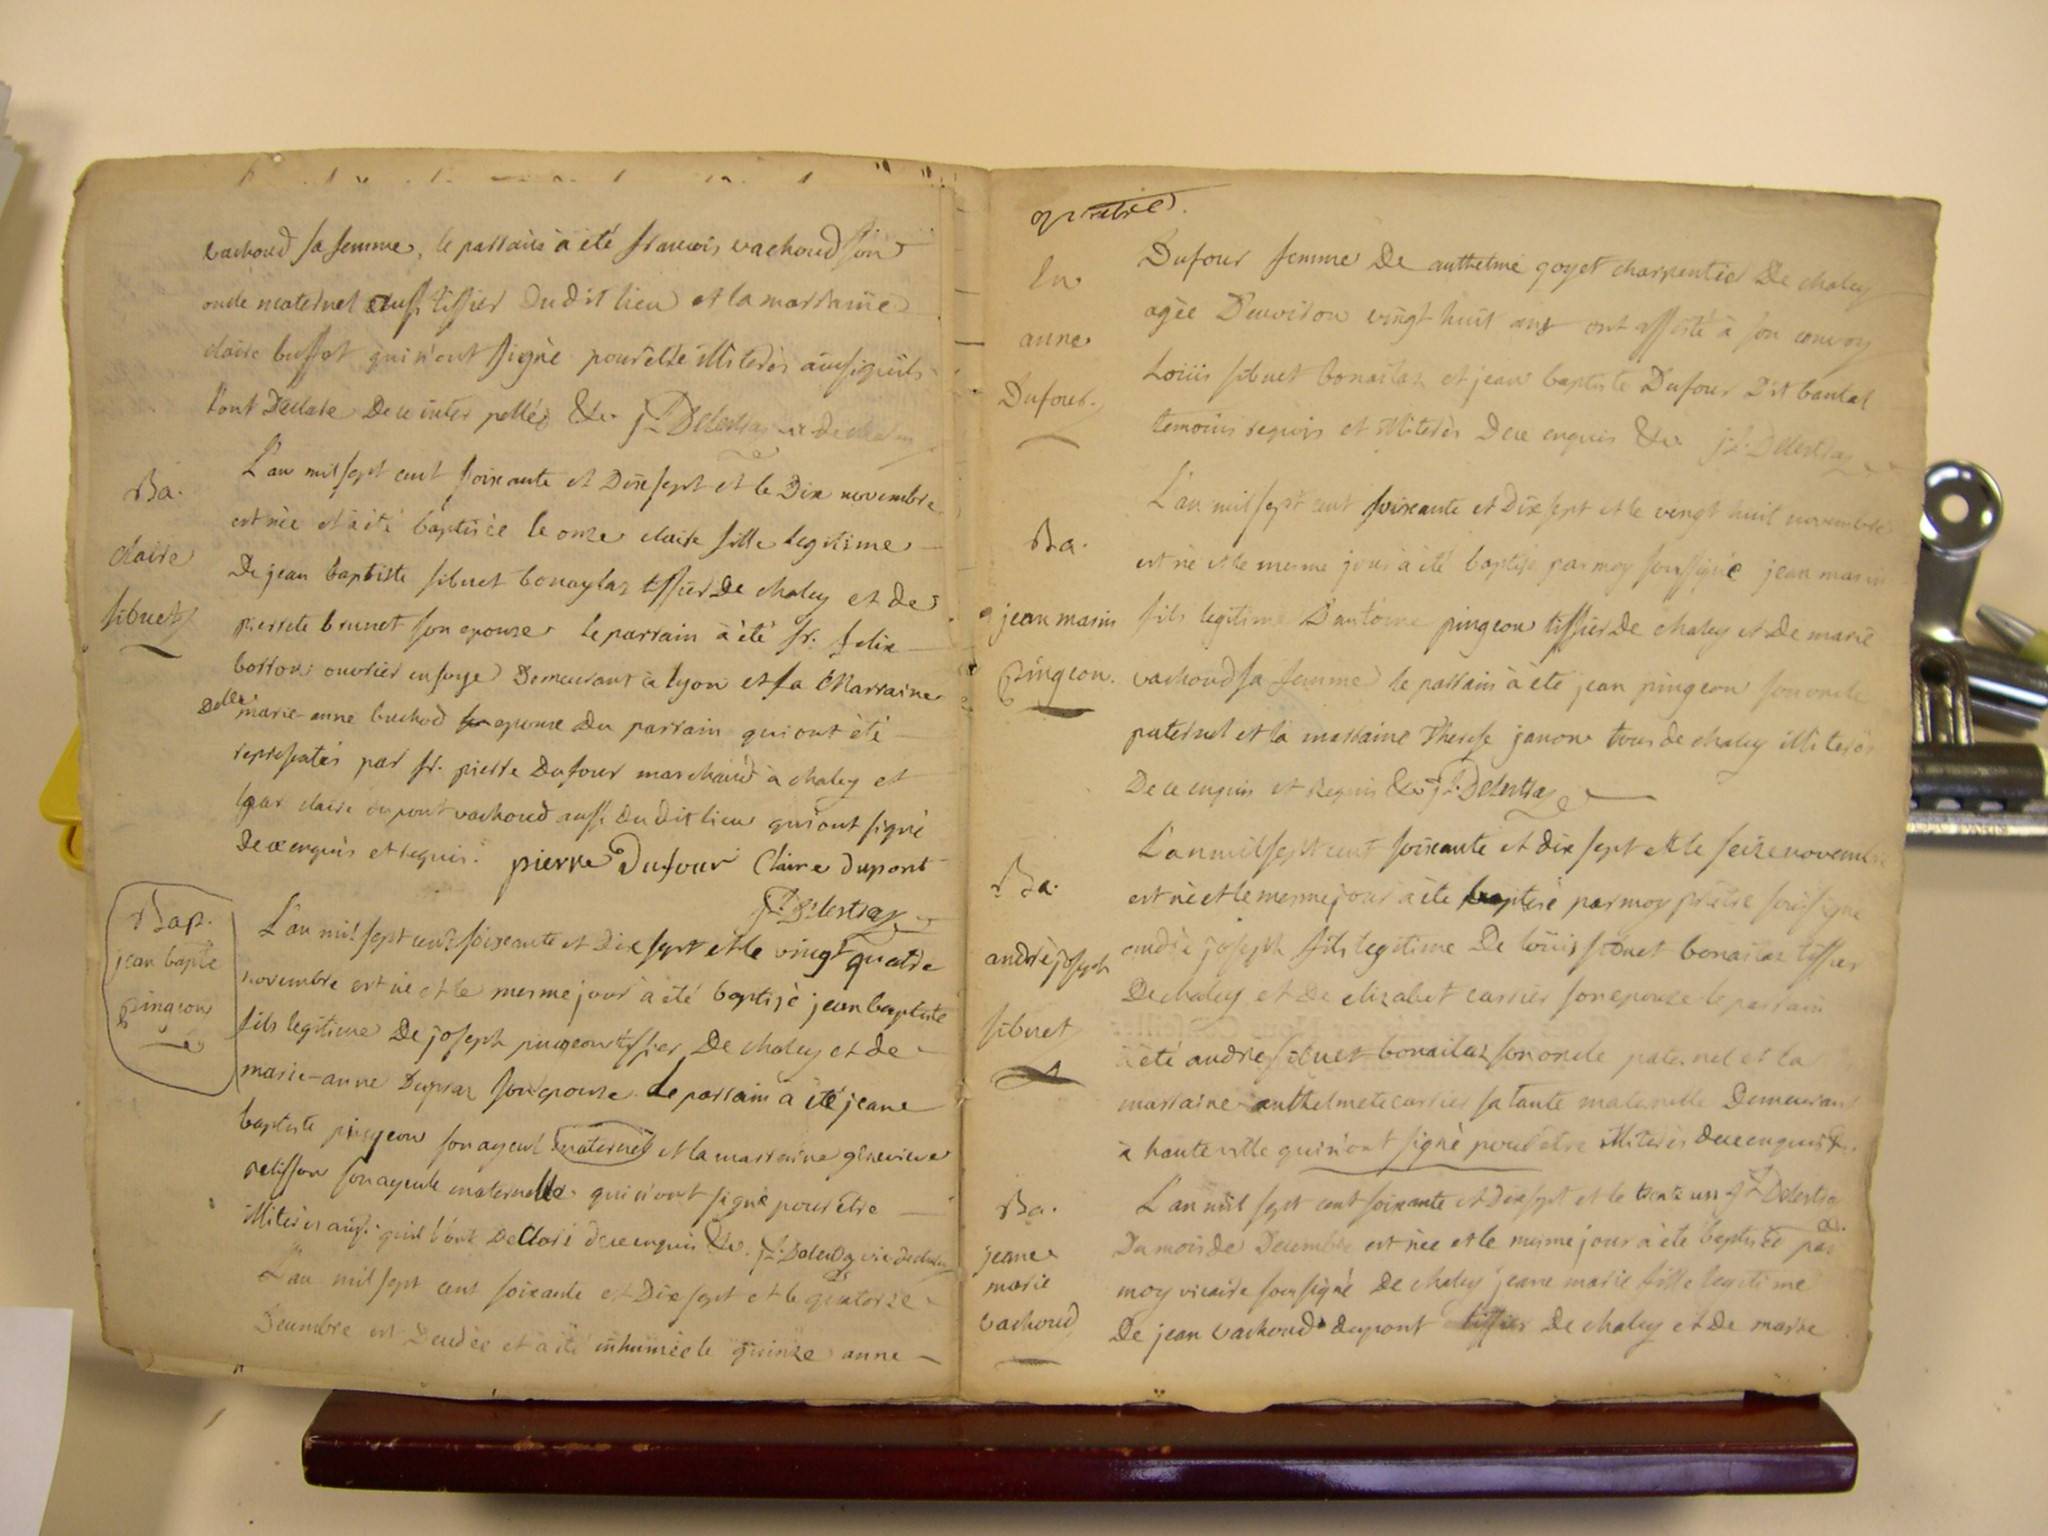 vachoud sa femme, le parrain à été francois vachoud son
oncle maternel aussi tissier dudit lieu et la marraine
claire buffet qui n'ont signé pour être illiterés ainsi qu'ils
l'ont déclaré de ce interpellés &c. jh Delestraz vic de chaley
Ba.
claire
sibuet
L'an mil sept cent soixante et dix sept et le dix novembre
est née et à été baptisée le onze claire fille legitime
De jean baptiste sibuet bonaylaz tissier De chaley et de
pierrete brunet son epouze le parrain à été sr. felix
borron ouvrier en soye Demeurant à lyon et la Marraine
Delle marie-anne buchod epouze du parrain qui ont été
represeatés par sr. pierre Dufour marchand à chaley et
par claire dupont vachoud aussi du dit lieu qui ont signé
De ce enquis et requis. pierre Dufour Claire dupont
jh Delestraz
Bap.
jean bapte
pingeon
L'an mil sept cent soixante et dix sept et le vingt quatre
novembre est né et le mesme jour à été baptisé jean baptiste
fils legitime De joseph pingeon tissier De chaley et de
marie-anne Dupraz son epouze. Le parrain à été jean
baptiste pingeon son ayeul maternel et la marraine genevieve
son ayeule maternelle qui n'ont signé pour être
illiterés ainsi qu'il l'ont Declaré de ce enquis &c. jh Delestraz vic de chaley
L'an mil sept cent soixante et dix sept et le quatorze
Decembre est Décédée et à été inhumée le quinze anne
quatrie
En
anne
Dufour.
Dufour femme De anthelme goyet charpentier De chaley
agée D'environ vingt huit ans ont assisté à son convoy
Loüis sibuet bonailaz et jean baptiste Dufour dit bantal
temoins requis et illiterés De ce enquis &c jh Delestraz
Ba.
jean marin
pingeon.
L'an mil sept cent soixante et dix sept et le vingt huit novembre
est né et le mesme jour à été baptisé par moy soussigné jean marin
fils legitime D'antoine pingeon tissier De chaley et De marie
vachoud sa femme le parrain à été jean pingeon son oncle
paternel et la marraine Therese janon tous de chaley illiterés
De ce enquis et requis &c jh Delestraz
Ba.
andré joseph
sibuet
L'an mil sept cent soixante et dix sept et le seize novembre
est né et le mesme jour à été baptisé par moy prêtre soussigné
andré joseph fils legitime De loüis sibuet bonailaz tissier
De chaley et De elizabet carrier son epouze le parrain
à été andré sibuet bonailaz son oncle paternel et la
marraine anthelmete carrier sa tante maternelle Demeurant
à hauteville qui n'ont signé pour être illiterés de ce enquis &c.
Ba.
jeane
marie
vachoud
L'an mil sept cent soixante et dix sept et le trente un jh Delestraz
Du mois de Decembre est née et le mesme jour à été baptisée par
moy vicaire soussigné De chaley jeane marie fille legitime
De jean vachoud dupont tissier De chaley et De marie